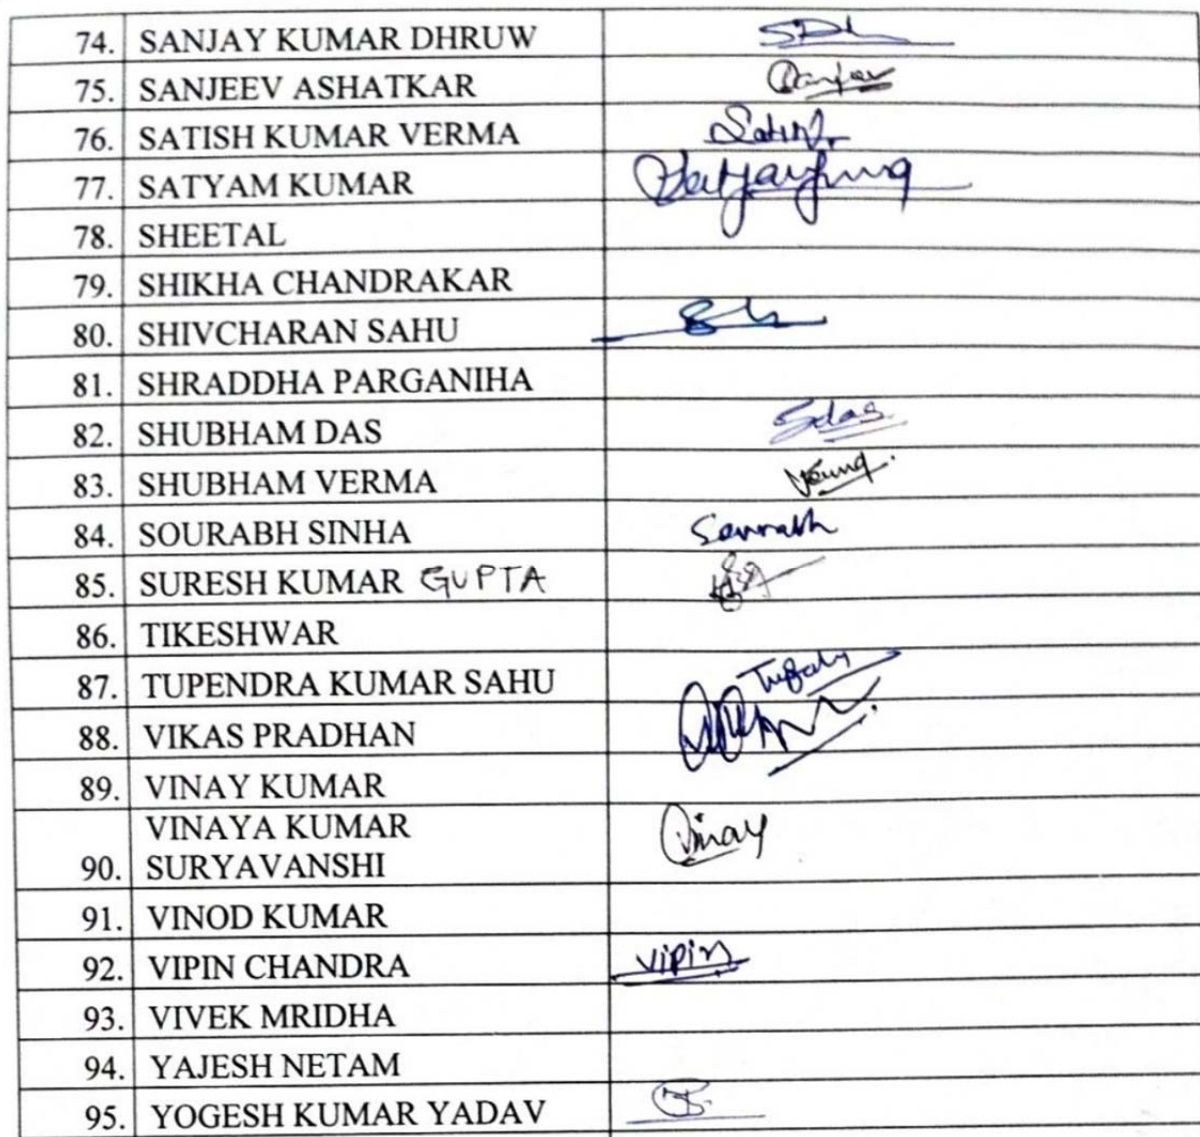 74. SANJAY KUMAR DHRUW
75. SANJEEV ASHATKAR
76. SATISH KUMAR VERMA
77. SATYAM KUMAR
78. SHEETAL
79. SHIKHA CHANDRAKAR
80. SHIVCHARAN SAHU
81. SHRADDHA PARGANIHA
82. SHUBHAM DAS Sdas
83. SHUBHAM VERMA
84. SOURABH SINHA Sourabh
85. SURESH KUMAR GUPTA
86. TIKESHWAR
87. TUPENDRA KUMAR SAHU
88. VIKAS PRADHAN
89. VINAY KUMAR
VINAYA KUMAR
90. SURYAVANSHI Vinay
91. VINOD KUMAR
92. VIPIN CHANDRA Vipin
93. VIVEK MRIDHA
94. YAJESH NETAM
95. YOGESH KUMAR YADAV